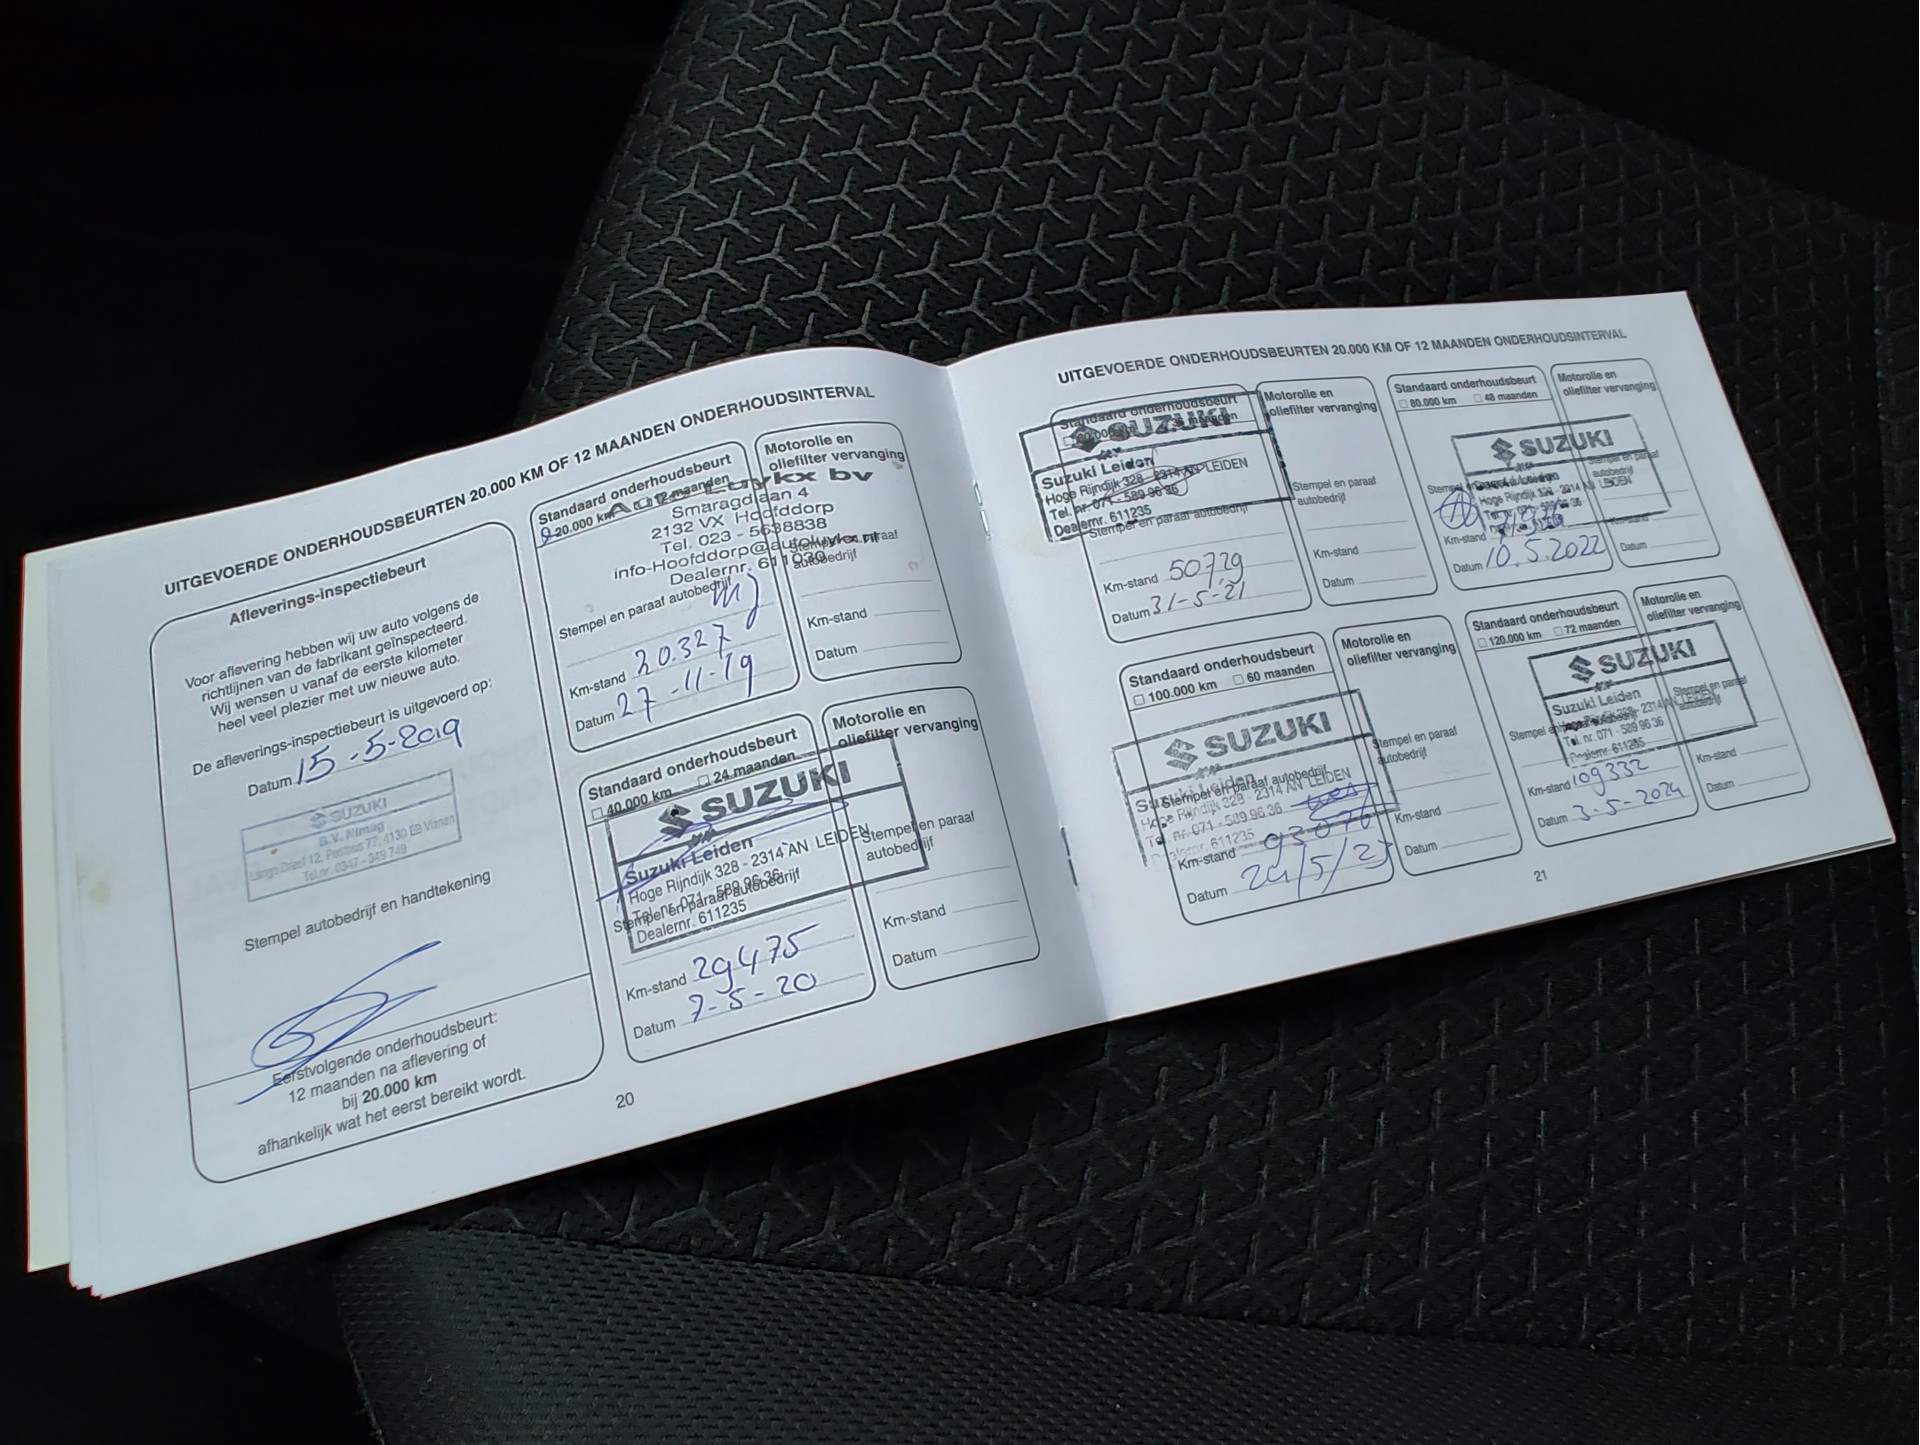 UITGEVOERDE ONDERHOUDSBEURTEN 20.000 KM OF 12 MAANDEN ONDERHOUDSINTERVAL
Afleverings-inspectiebeurt
Voor aflevering hebben wij uw auto volgens de
richtlijnen van de fabrikant geïnspecteerd.
Wij wensen u vanaf de eerste kilometer
heel veel plezier met uw nieuwe auto.
De afleverings-inspectiebeurt is uitgevoerd op:
Datum 15-5-2019
SUZUKI
B.V. Nimag
Lange Dreef 12, Postbus 77, 4130 EB Vianen
Tel.nr. 0347 - 349 749
Stempel autobedrijf en handtekening
Eerstvolgende onderhoudsbeurt:
12 maanden na aflevering of
bij 20.000 km
afhankelijk wat het eerst bereikt wordt.
Standaard onderhoudsbeurt
20.000 km 12 maanden
Luykx bv
Smaragdlaan 4
2132 VX Hoofddorp
Tel. 023 - 5638838
info-Hoofddorp@autoluykx.nl
Dealernr. 611030
Stempel en paraaf autobedrijf
Km-stand 20.327
Datum 27-11-19
Motorolie en
oliefilter vervanging
Stempel en paraaf
autobedrijf
Km-stand
Datum
Standaard onderhoudsbeurt
40.000 km 24 maanden
SUZUKI
Suzuki Leiden
Hoge Rijndijk 328 - 2314 AN LEIDEN
Tel. nr. 071 - 589 96 36
Stempel en paraaf autobedrijf
Dealernr. 611235
Km-stand 29475
Datum 7-5-20
Motorolie en
oliefilter vervanging
Stempel en paraaf
autobedrijf
Km-stand
Datum
20
UITGEVOERDE ONDERHOUDSBEURTEN 20.000 KM OF 12 MAANDEN ONDERHOUDSINTERVAL
Standaard onderhoudsbeurt
SUZUKI
Suzuki Leiden
Hoge Rijndijk 328 - 2314 AN LEIDEN
Tel. nr. 071 - 589 96 36
Dealernr. 611235
Stempel en paraaf autobedrijf
Km-stand 50729
Datum 31-5-21
Motorolie en
oliefilter vervanging
Stempel en paraaf
autobedrijf
Km-stand
Datum
Standaard onderhoudsbeurt
80.000 km 48 maanden
SUZUKI
Hoge Rijndijk 328 - 2314 AN LEIDEN
Km-stand
Datum 10.5.2022
Motorolie en
oliefilter vervanging
Stempel en paraaf
autobedrijf
Km-stand
Datum
Standaard onderhoudsbeurt
100.000 km 60 maanden
SUZUKI
Suzuki Leiden
Stempel en paraaf autobedrijf
Hoge Rijndijk 328 - 2314 AN LEIDEN
Tel. nr. 071 - 589 96 36
Dealernr. 611235
Km-stand 93076
Datum 24/5/23
Motorolie en
oliefilter vervanging
Stempel en paraaf
autobedrijf
Km-stand
Datum
Standaard onderhoudsbeurt
120.000 km 72 maanden
SUZUKI
Suzuki Leiden
Hoge Rijndijk 328 - 2314 AN LEIDEN
Tel. nr. 071 - 589 96 36
Dealernr. 611235
Km-stand 109332
Datum 3-5-2024
Motorolie en
oliefilter vervanging
Stempel en paraaf
autobedrijf
Km-stand
Datum
21